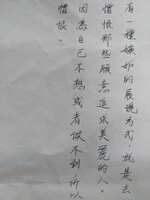 有一種嫉妒的展現方式，就是去
憎恨那些願意追求美麗的人。
因為自己不想或者做不到所以
憎恨。